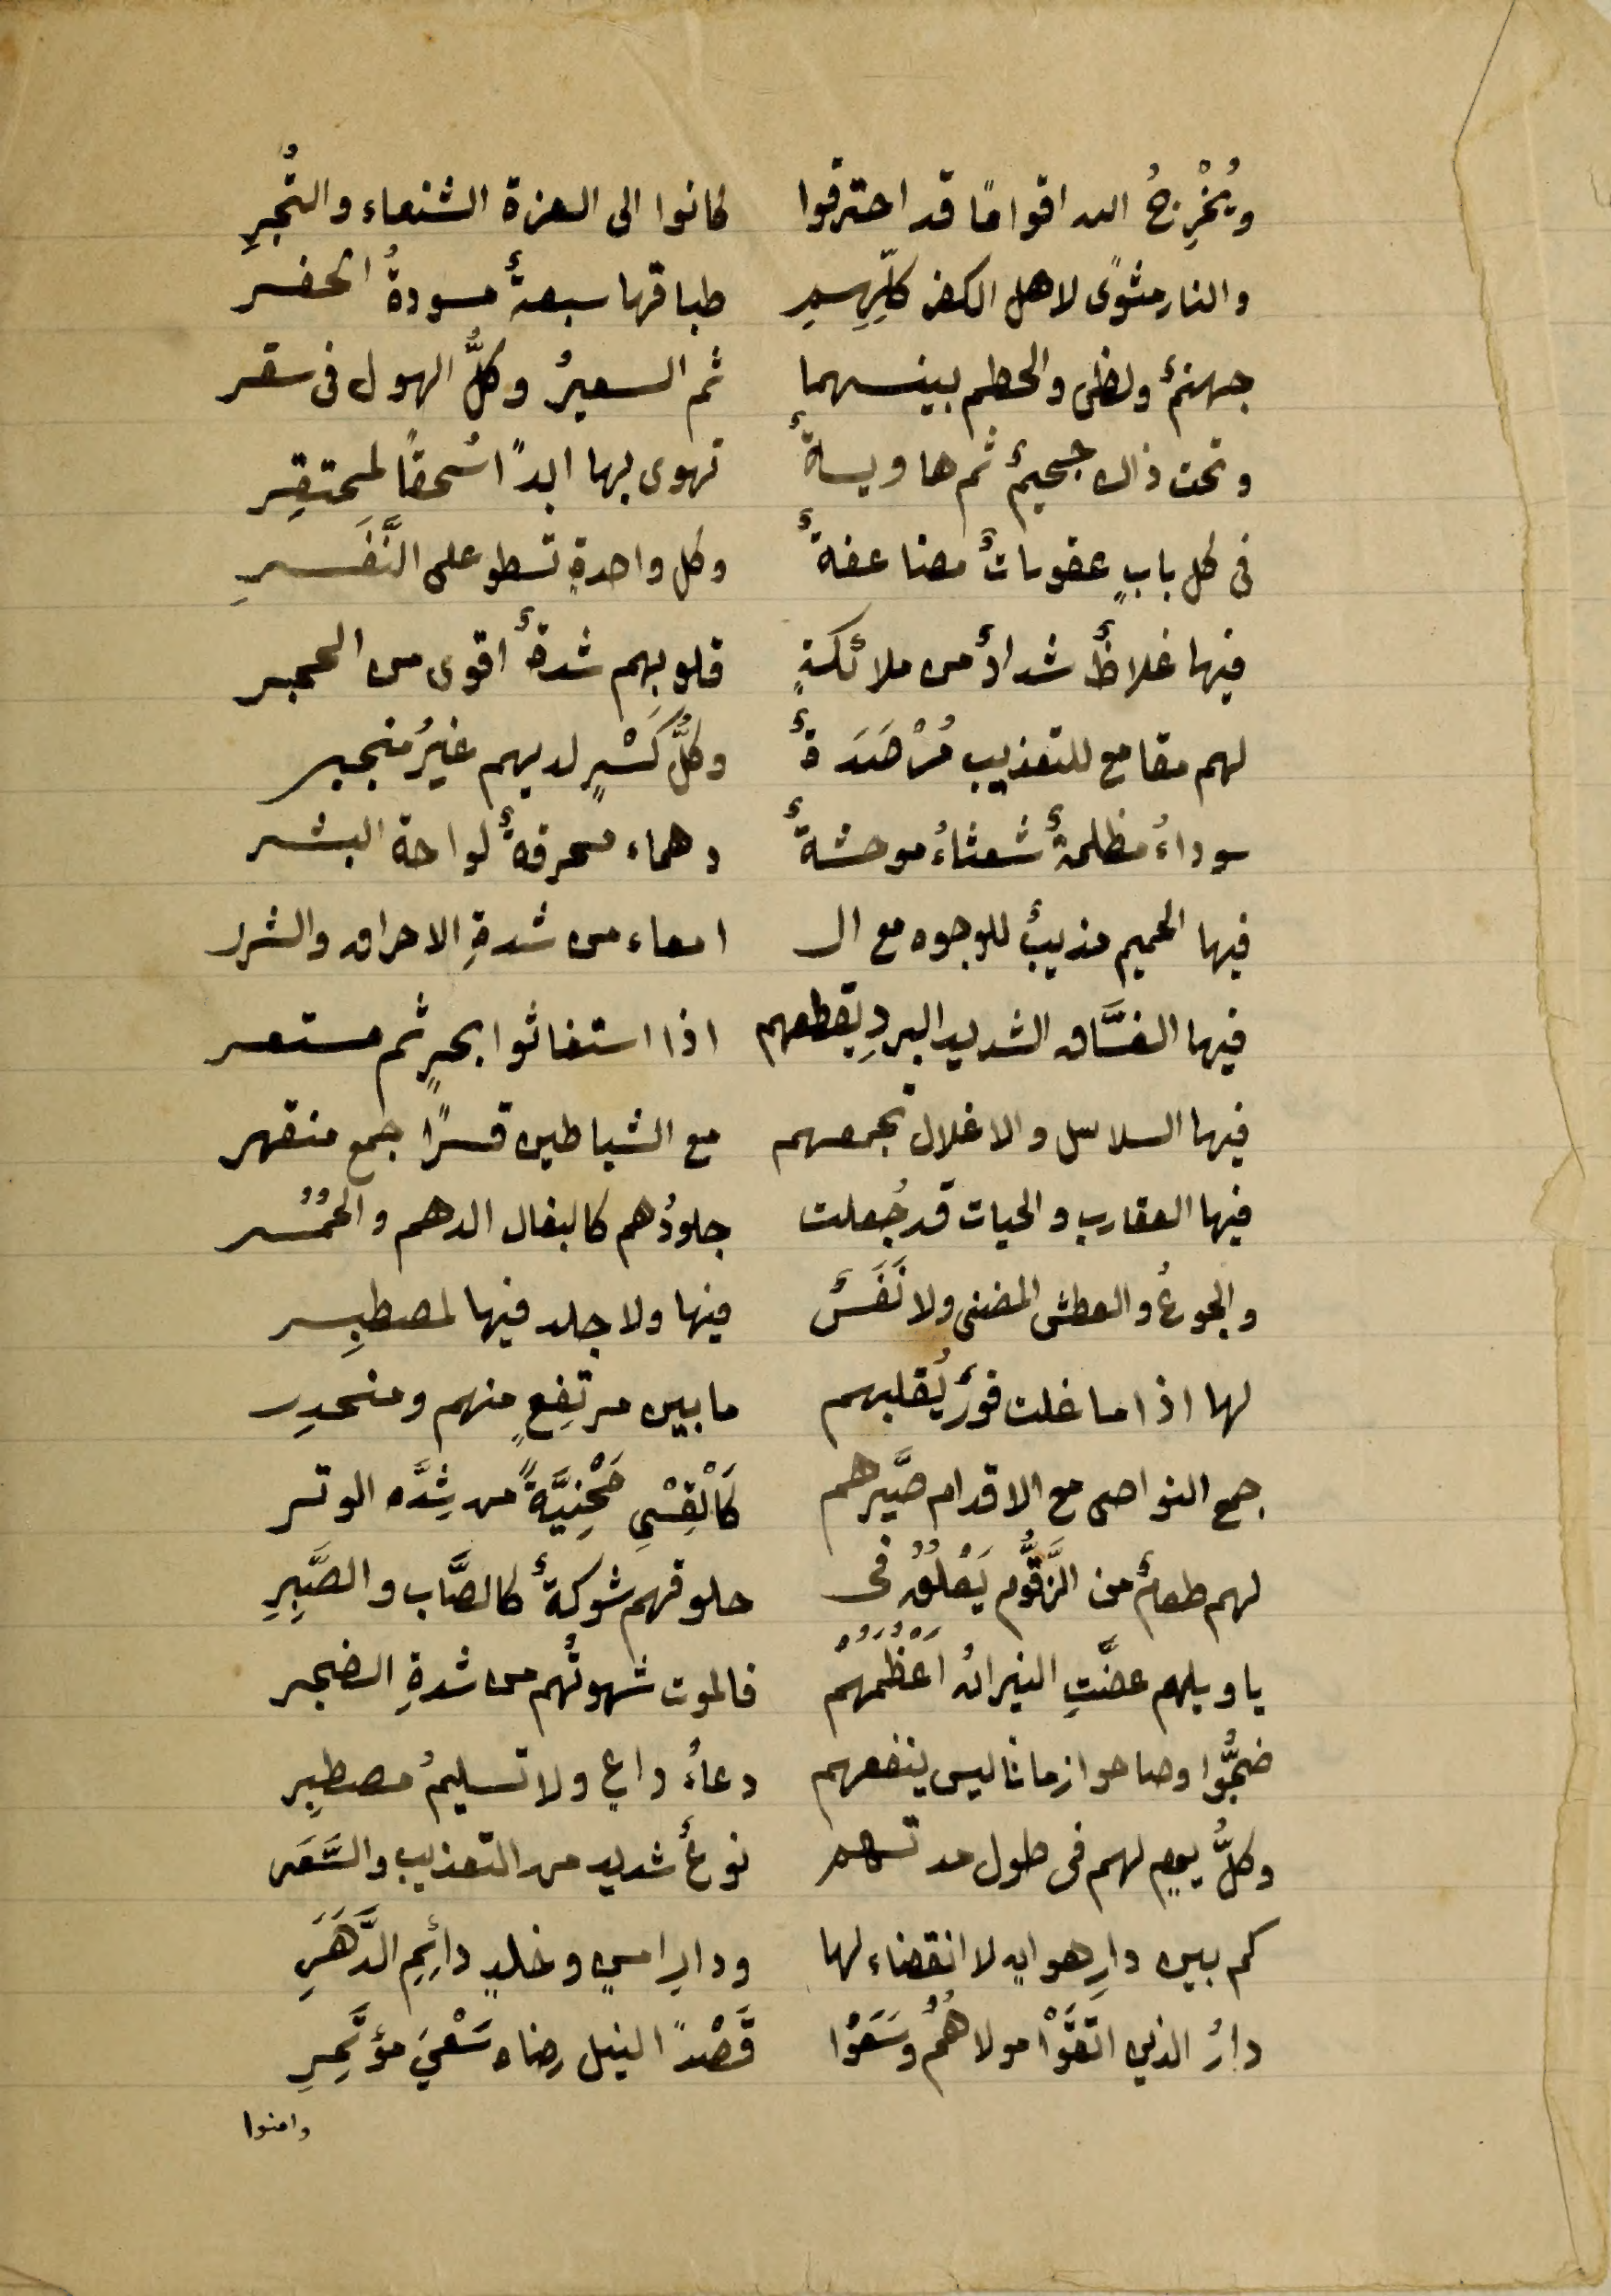 ويُخْرِجُ الله اقوامًا قد احترقوا كانوا الى العزة الشنعاء والتُّجُرِ
والنار مثوىً لاهل الكفر كلِّهِمِ طباقها سبعةٌ مسودةُ الحفر
جهنمٌ ولظى والحطم بينهما ثم السعيرُ وكلُّ الهول فى سقر
وتحت ذاك جحيمٌ ثم هاويةٌ تهوى بها ابدًا سُحقًا لمحتقِر
فى كل بابٍ عقوباتٌ مضاعفةٌ وكل واحدةٍ تسطو على النَّفَرِ
فيها غلاظٌ شدادٌ من ملائكةٍ قلوبِهم شدةٌ اقوى من الحجر
لهم مقامع للتعذيب مُرْصَدَةٌ وكلُّ كَسْرٍ لديهم غيرُ منجبر
سوداءُ مظلمةٌ شعثاءُ موحشةٌ دهماء محرقةٌ لواحة البشر
فيها الحميم مذيبٌ للوجوه مع ال امعاء من شدةِ الاحراق والشرر
فيها الغسَّاق الشديد البردِ يقطعهم اذا استغاثوا بحرٍ ثم مستعر
فيها السلاسل والاغلال تجمعهم مع الشياطين قسرًا جمع منقهر
فيها العقارب والحيات قد جُعلت جلودُهم كالبغال الدهم والحُمُر
والجوعُ والعطش المضنى ولا نَفَسٌ فيها ولا جلد فيها لمصطبِر
لها اذا ما غلت فورٌ يُقلبهم ما بين مرتفِعٍ منهم ومنحدِر
جمع النواصى مع الاقدام صيَّرهم كَالْقِسْىِ مَحْنِيَّةً من شِدَّه الوتر
لهم طعامٌ من الزَّقُّوم يَعْلُقُ فى حلوقهم شوكةٌ كالصَّاب والصَّبِرِ
يا ويلهم عضَّتِ النيرانُ اَعْظُمَهُمْ فالموت شهوتُهم من شدةِ الضجر
ضجُّوا وصاحوا زمانًا ليس ينفعهم دعاءُ داعٍ ولا تسليمُ مصطبِر
وكلُّ يومٍ لهم فى طول مدتهم نوعٌ شديد من التعذيب والسَّعَر
كم بين دارِ هوانٍ لا انقضاء لها ودارِ امنٍ وخلدٍ دائِمِ الدَّهَرِ
دارُ الذين اتقَوْا مولاهُمُ وسَعَوْا قَصْدًا لنيل رضاه سَعْىَ مؤتَمِرِ
وامنوا